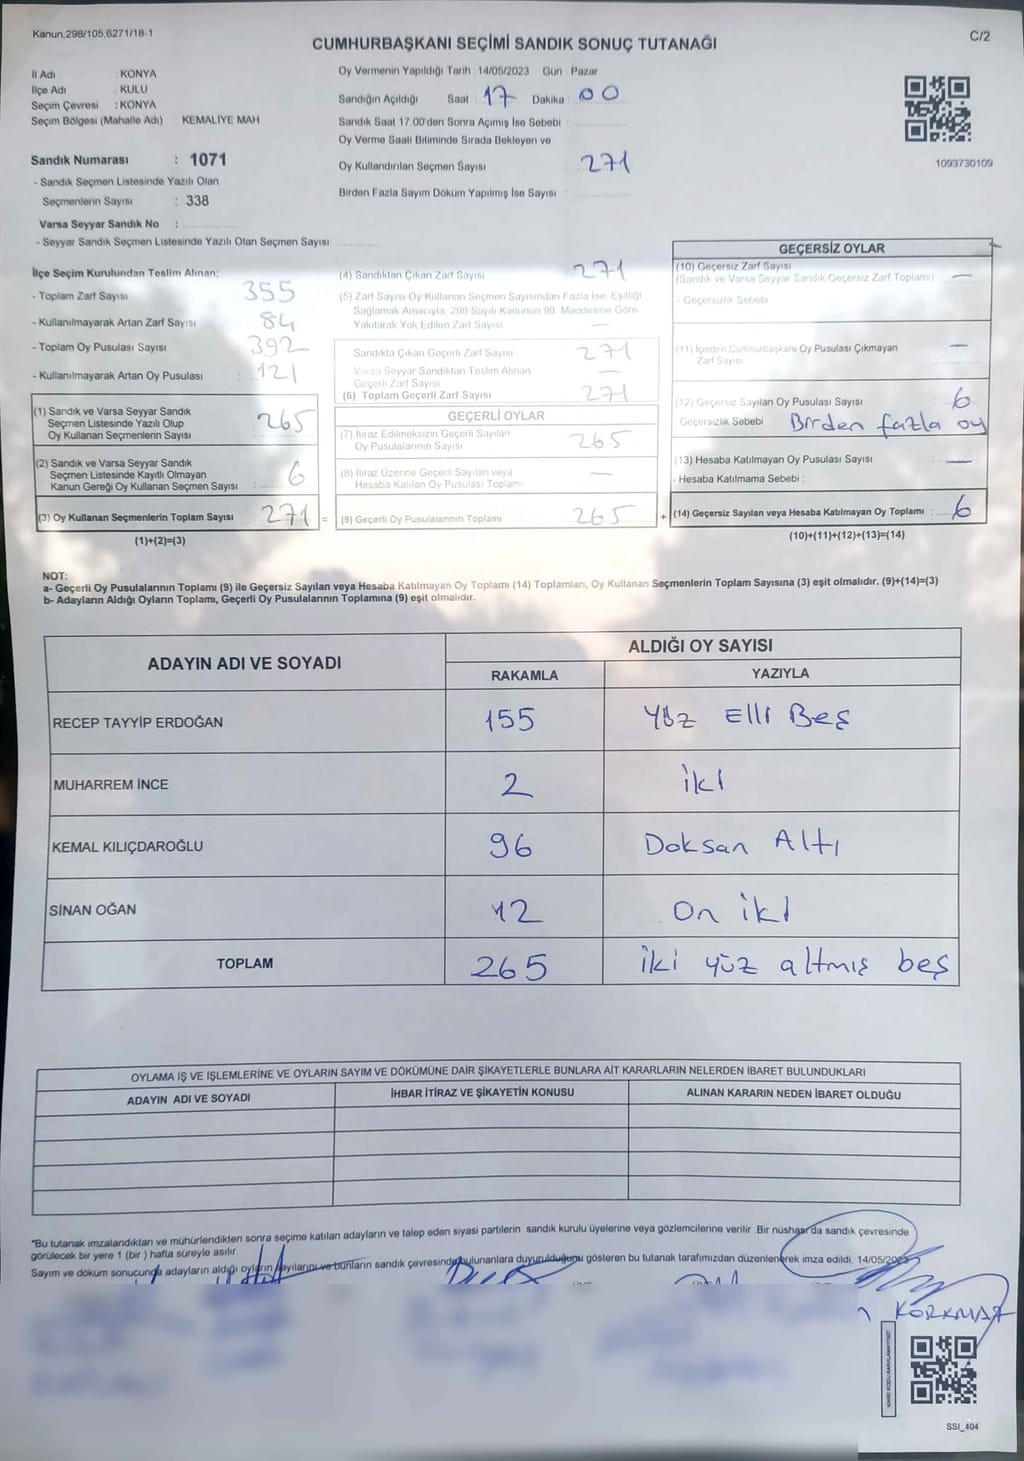 Kanun,298/105,6271/18-1
C/2
CUMHURBAŞKANI SEÇİMİ SANDIK SONUÇ TUTANAĞI
İl Adı : KONYA
İlçe Adı : KULU
Seçim Çevresi : KONYA
Seçim Bölgesi (Mahalle Adı) : KEMALİYE MAH
Sandık Numarası : 1071
- Sandık Seçmen Listesinde Yazılı Olan
Seçmenlerin Sayısı : 338
Varsa Seyyar Sandık No :
- Seyyar Sandık Seçmen Listesinde Yazılı Olan Seçmen Sayısı:
Oy Vermenin Yapıldığı Tarih : 14/05/2023 Gün : Pazar
Sandığın Açıldığı Saat : 17 Dakika : 00
Sandık Saat 17:00'den Sonra Açımış İse Sebebi :
Oy Verme Saati Bitiminde Sırada Bekleyen ve
Oy Kullandırılan Seçmen Sayısı : 271
Birden Fazla Sayım Döküm Yapılmış İse Sayısı :
1093730109
İlçe Seçim Kurulundan Teslim Alınan;
- Toplam Zarf Sayısı : 355
- Kullanılmayarak Artan Zarf Sayısı : 84
- Toplam Oy Pusulası Sayısı : 392
- Kullanılmayarak Artan Oy Pusulası : 121
(1) Sandık ve Varsa Seyyar Sandık
Seçmen Listesinde Yazılı Olup
Oy Kullanan Seçmenlerin Sayısı : 265
(2) Sandık ve Varsa Seyyar Sandık
Seçmen Listesinde Kayıtlı Olmayan
Kanun Gereği Oy Kullanan Seçmen Sayısı : 6
(3) Oy Kullanan Seçmenlerin Toplam Sayısı : 271 =
(1)+(2)=(3)
(4) Sandıktan Çıkan Zarf Sayısı : 271
(5) Zarf Sayısı Oy Kullanan Seçmen Sayısından Fazla İse, Eşitliği
Sağlamak Amacıyla, 298 Sayılı Kanunun 98. Maddesine Göre
Yakılarak Yok Edilen Zarf Sayısı : —
Sandıkta Çıkan Geçerli Zarf Sayısı : 271
Varsa Seyyar Sandıktan Teslim Alınan
Geçerli Zarf Sayısı : —
(6) Toplam Geçerli Zarf Sayısı : 271
GEÇERLİ OYLAR
(7) İtiraz Edilmeksizin Geçerli Sayılan
Oy Pusulalarının Sayısı : 265
(8) İtiraz Üzerine Geçerli Sayılan veya
Hesaba Katılan Oy Pusulası Toplamı : —
(9) Geçerli Oy Pusulalarının Toplamı : 265 +
GEÇERSİZ OYLAR
(10) Geçersiz Zarf Sayısı
(Sandık ve Varsa Seyyar Sandık Geçersiz Zarf Toplamı) : —
- Geçersizlik Sebebi
(11) İçinden Cumhurbaşkanı Oy Pusulası Çıkmayan
Zarf Sayısı : —
(12) Geçersiz Sayılan Oy Pusulası Sayısı : 6
Geçersizlik Sebebi : Birden fazla oy
(13) Hesaba Katılmayan Oy Pusulası Sayısı : —
- Hesaba Katılmama Sebebi :
(14) Geçersiz Sayılan veya Hesaba Katılmayan Oy Toplamı : 6
(10)+(11)+(12)+(13)=(14)
NOT:
a- Geçerli Oy Pusulalarının Toplamı (9) ile Geçersiz Sayılan veya Hesaba Katılmayan Oy Toplamı (14) Toplamları, Oy Kullanan Seçmenlerin Toplam Sayısına (3) eşit olmalıdır. (9)+(14)=(3)
b- Adayların Aldığı Oyların Toplamı, Geçerli Oy Pusulalarının Toplamına (9) eşit olmalıdır.
ADAYIN ADI VE SOYADI
ALDIĞI OY SAYISI
RAKAMLA YAZIYLA
RECEP TAYYİP ERDOĞAN 155 Yüz Elli Beş
MUHARREM İNCE 2 iki
KEMAL KILIÇDAROĞLU 96 Doksan Altı
SİNAN OĞAN 12 On iki
TOPLAM 265 iki yüz altmış beş
OYLAMA İŞ VE İŞLEMLERİNE VE OYLARIN SAYIM VE DÖKÜMÜNE DAİR ŞİKAYETLERLE BUNLARA AİT KARARLARIN NELERDEN İBARET BULUNDUKLARI
ADAYIN ADI VE SOYADI İHBAR İTİRAZ VE ŞİKAYETİN KONUSU ALINAN KARARIN NEDEN İBARET OLDUĞU
"Bu tutanak imzalandıktan ve mühürlendikten sonra seçime katılan adayların ve talep eden siyasi partilerin sandık kurulu üyelerine veya gözlemcilerine verilir .Bir nüshası da sandık çevresinde
görülecek bir yere 1 (bir ) hafta süreyle asılır.
Sayım ve döküm sonucunda adayların aldığı oyların sayılarını ve bunların sandık çevresinde bulunanlara duyurulduğunu gösteren bu tutanak tarafımızdan düzenlenerek imza edildi. 14/05/2023
KORKMAZ
SSI_404